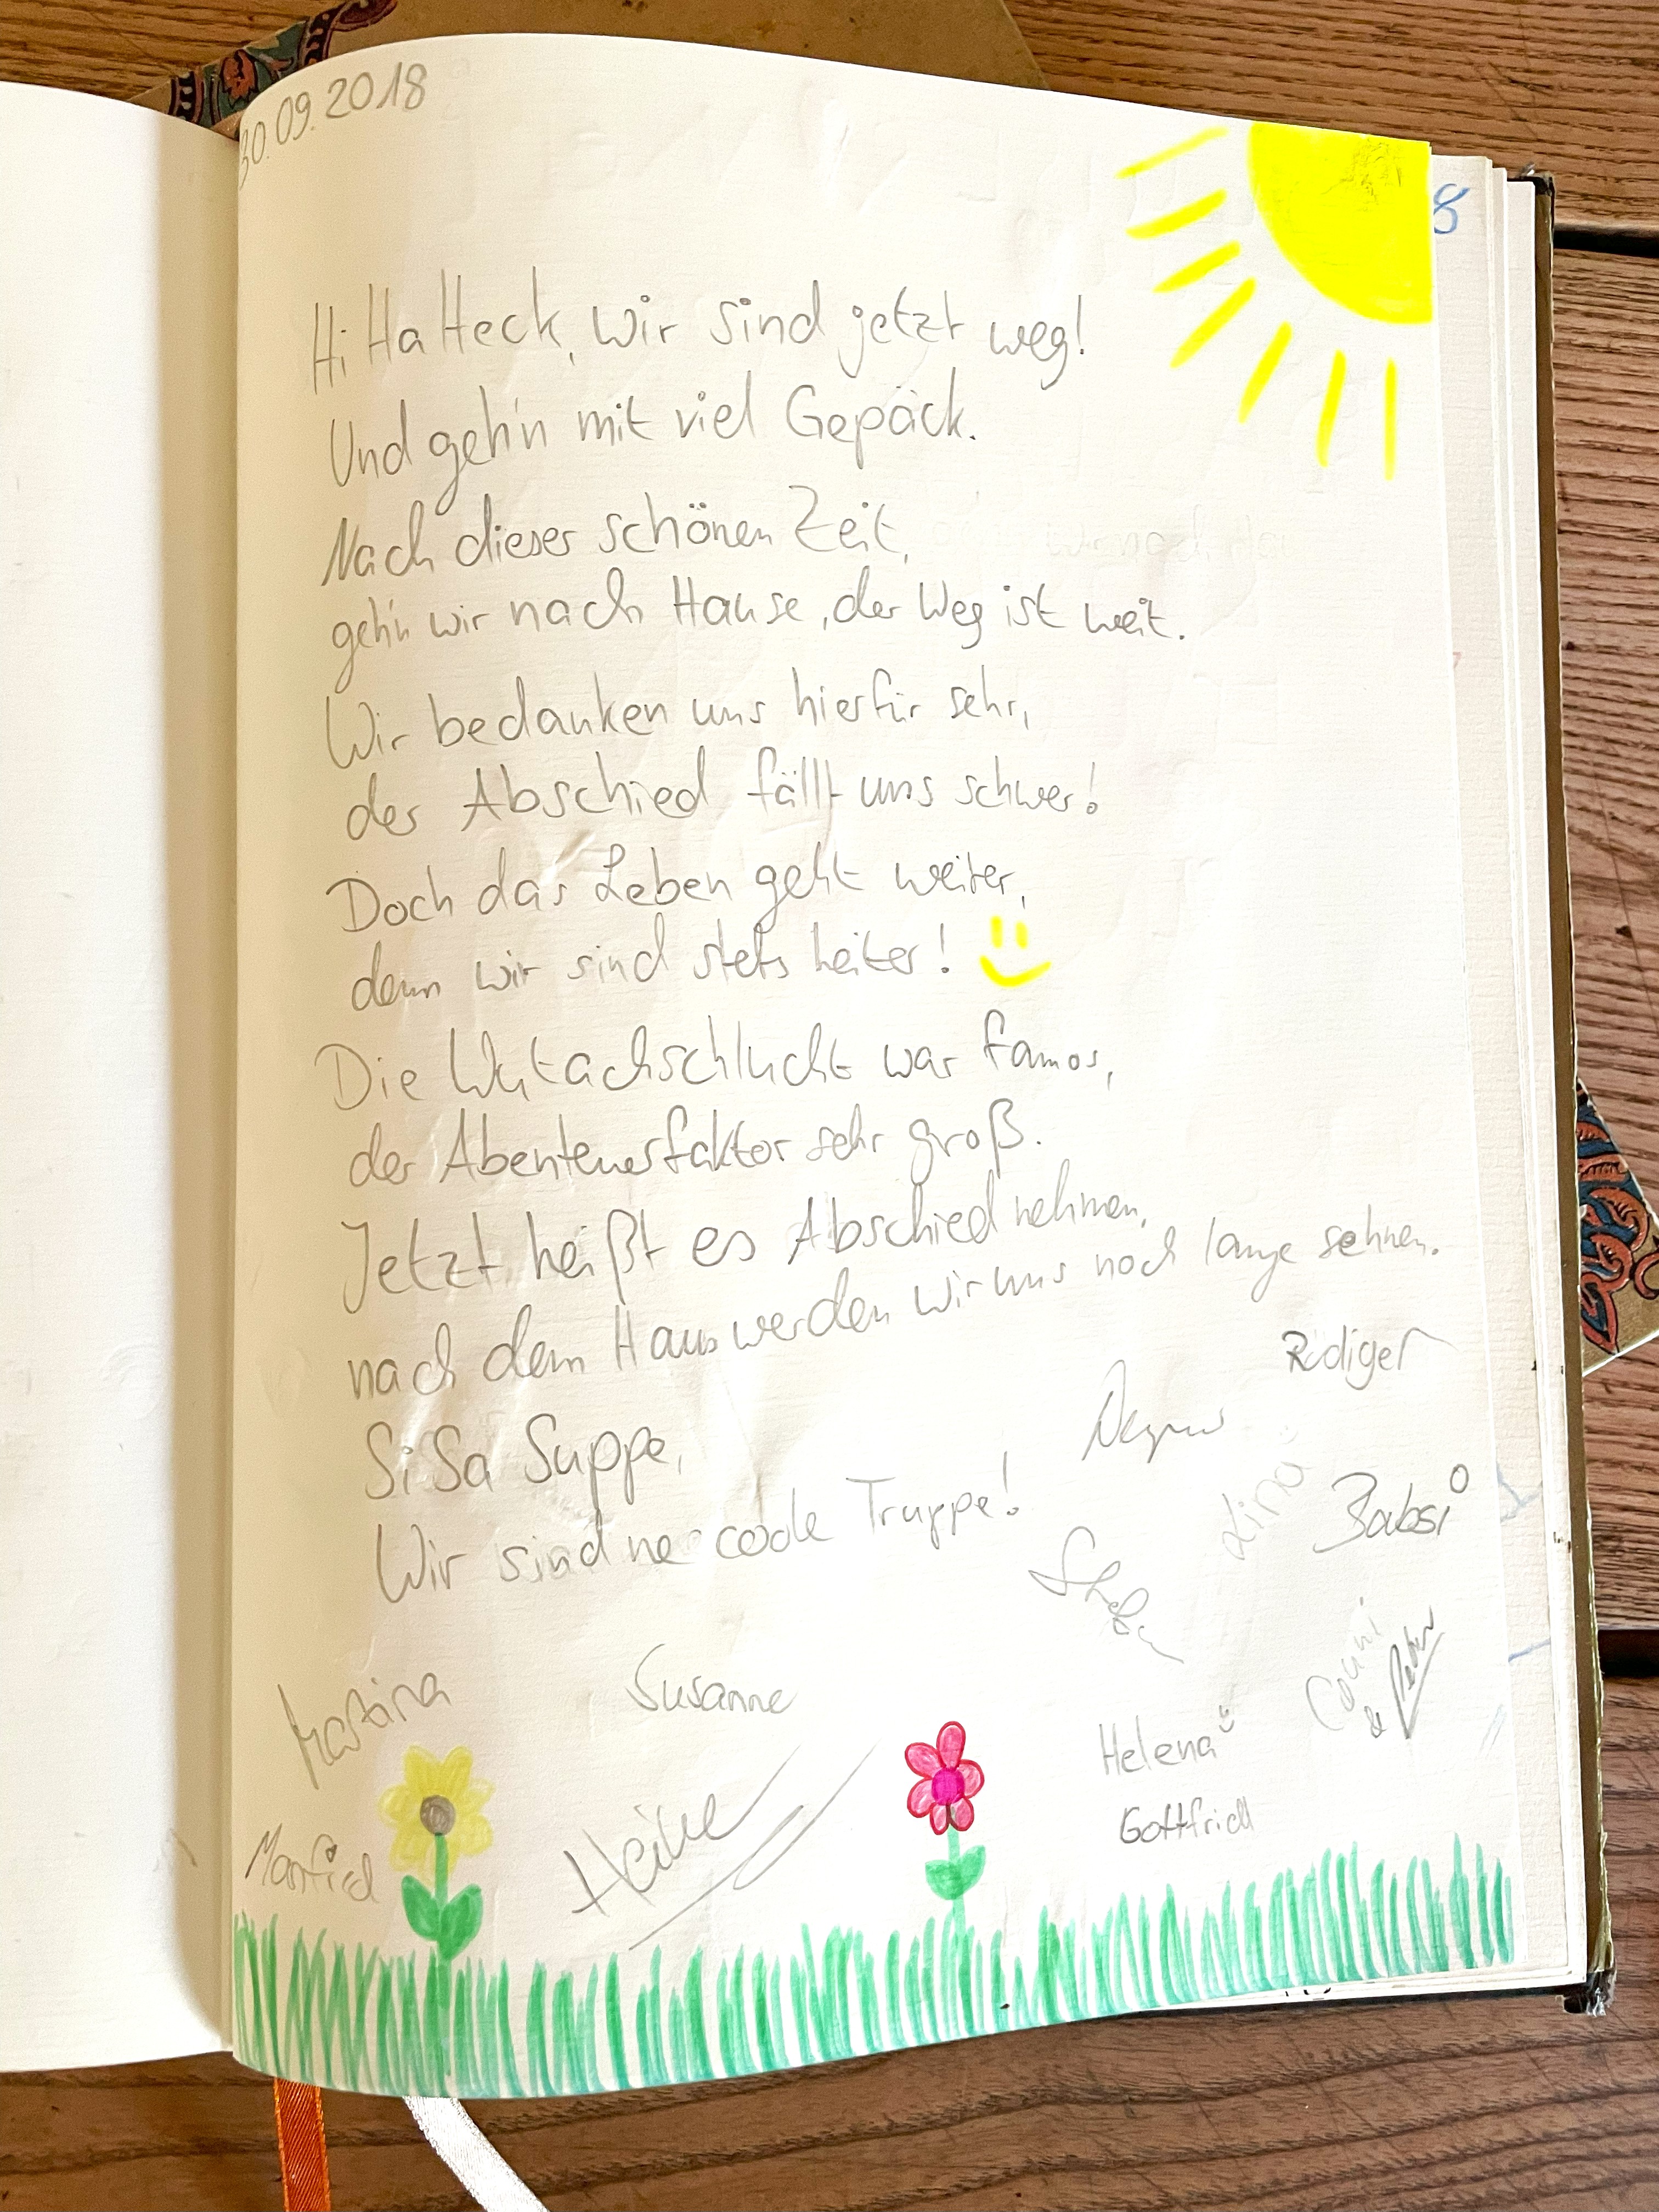 30.09.2018
8
Hi Ha Heck, wir sind jetzt weg!
Und geh'n mit viel Gepäck.
Nach dieser schönen Zeit,
geh'n wir nach Hause, der Weg ist weit.
Wir bedanken uns hierfür sehr,
der Abschied fällt uns schwer!
Doch das Leben geht weiter,
denn wir sind stets heiter!
Die Wutachschlucht war famos,
der Abenteuerfaktor sehr groß.
Jetzt heißt es Abschied nehmen,
nach dem Haus werden wir uns noch lange sehnen.
Si Sa Suppe,
Wir sind ne coole Truppe!
Rüdiger
Lina
Babsi
Stefan
Conni
& Peter
Martina
Susanne
Helena
Gottfried
Heike
Manfred